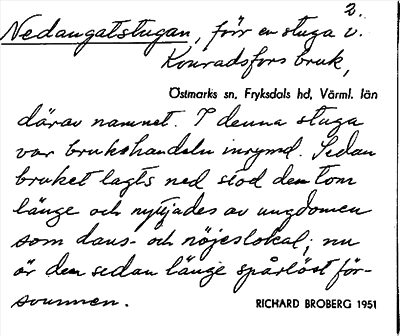 2.
Nedangatstugan, förr en stuga v.
Konradsfors bruk,
Östmarks sn, Fryksdals hd, Värml. län
därav namnet. I denna stuga
var brukshandeln inrymd. Sedan
bruket lagts ned stod den tom
länge och nyttjades av ungdomen
som dans- och nöjeslokal; nu
är den sedan länge spårlöst för-
svunnen.
RICHARD BROBERG 1951